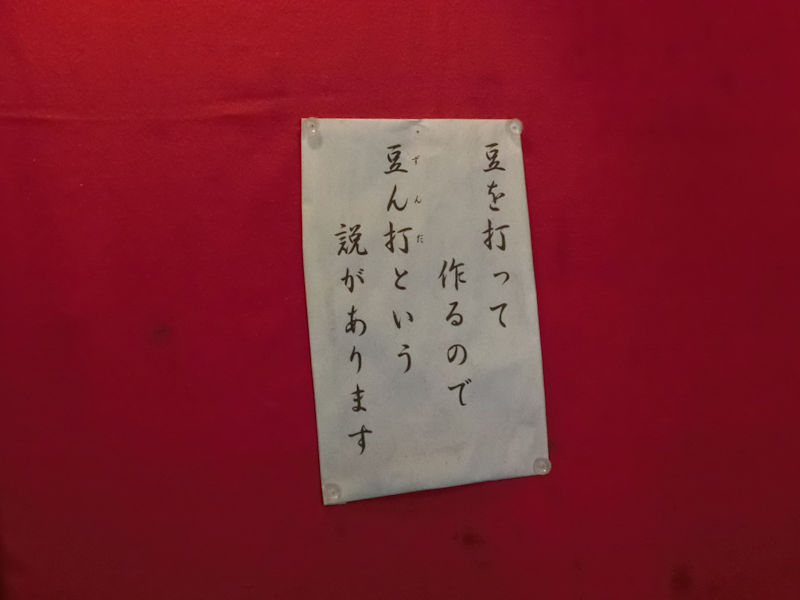 豆を打って
作るので
ずんだ
豆ん打という
説があります